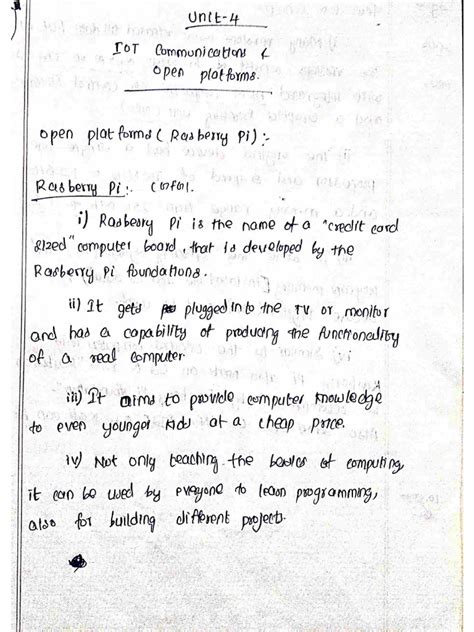 Unit-4
IOT Communications &
open platforms.
open platforms (Rasberry Pi):-
Rasberry Pi:-
i) Rasbeory Pi is the name of a "credit card
sized" computer board, that is developed by the
Rasberry Pi foundations.
ii) It gets plugged in to the TV or, monitor
and has a capability of producing the functionality
of, a real computer.
iii) It aims to provide computer Knowledge
to even younger kids at a cheap price.
iv) Not only teaching the basics of computing,
it can be used by everyone to learn programming,
also for building different projects.